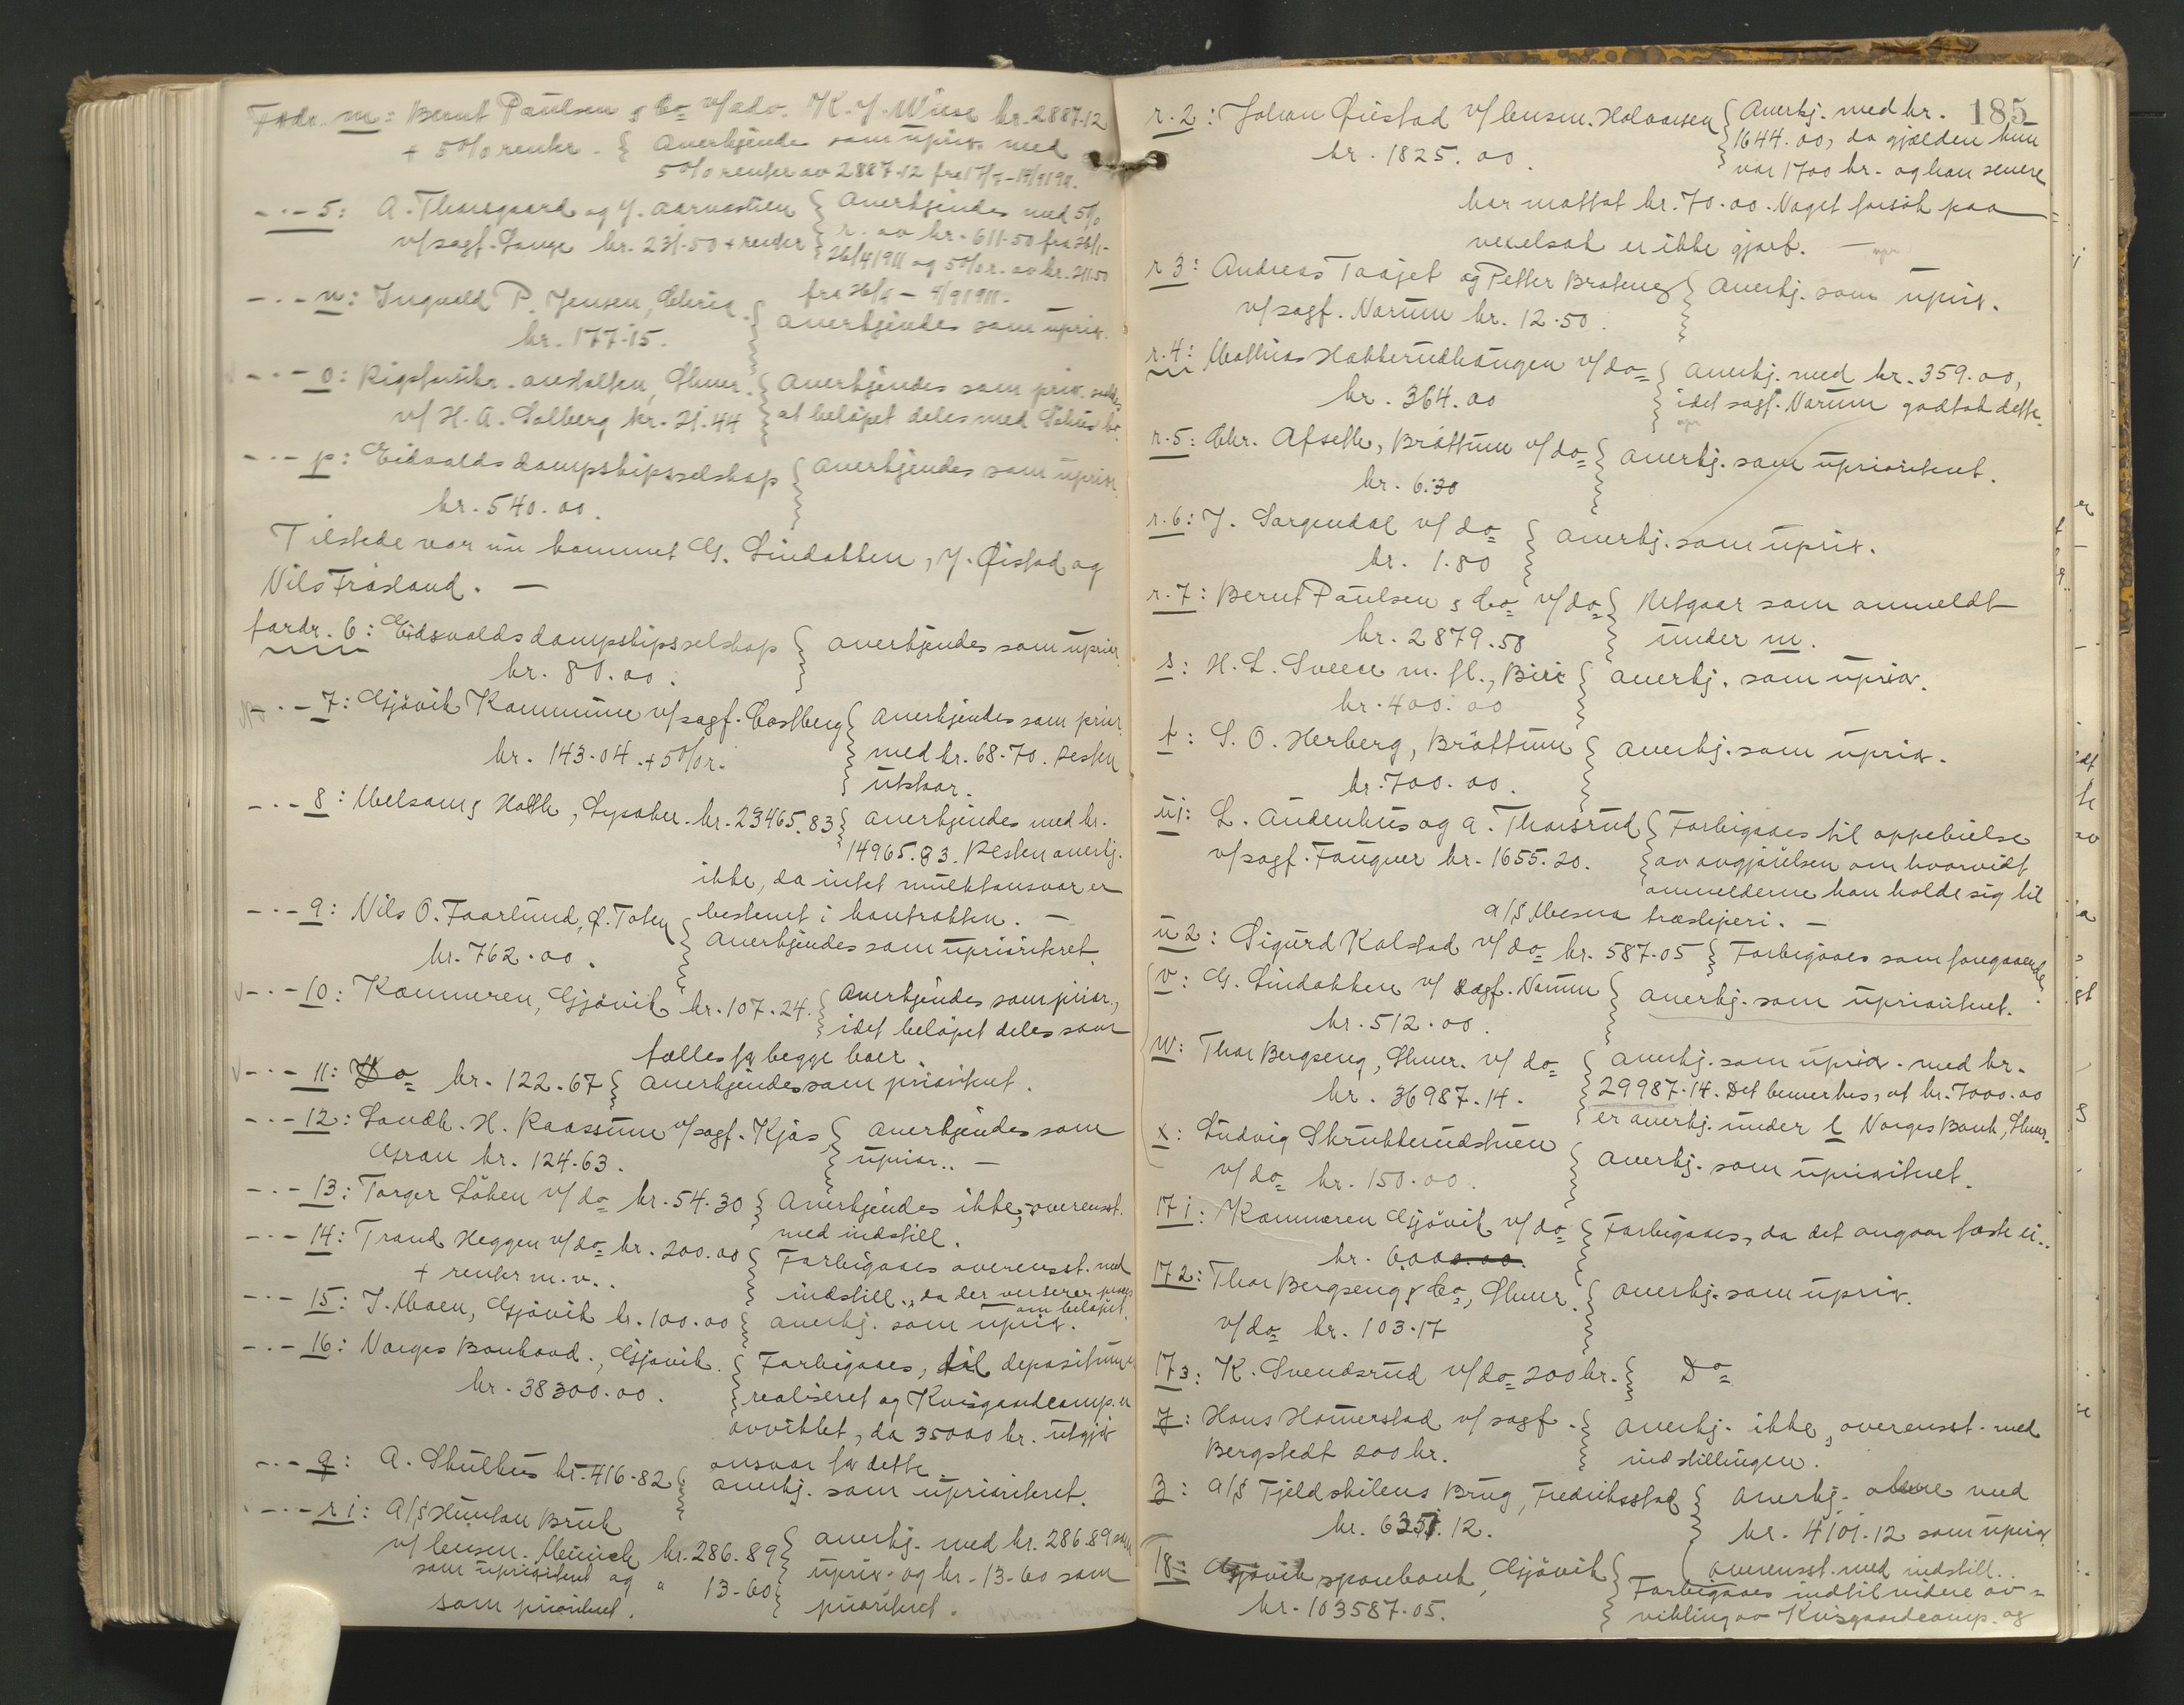 Fordr. m: Bernt Paulsen & Co v/adv. K. J. Wiese kr. 2887.12
+ 5% renter. Anerkjendes som uprior. med
5% renter av 2887.12 fra 17/7 - 18/9 1911.
- . - 5: A. Thorsgaard og J. Aarnæstuen Anerkjendes med 5%
v/sagf. Lange kr. 231.50 + renter r. av kr. 611.50 fra 26/1 -
26/4 1911 og 5% r. av kr. 211.50
fra 26/4 - 4/9 1911.
- . - n: Ingvald P. Jensen, Chria. Anerkjendes som uprior.
kr. 177.15.
- . - o: Rigsforsikr. anstalten, Lhmr. Anerkjendes som prior. saaledes
v/ H. A. Solberg kr. 21.44 at beløpet deles med Schius bo.
- . - p: Eidsvolds dampskipsselskap Anerkjendes som uprior.
kr. 540.00.
Tilstede var nu kommet G. Lindokken, J. Øistad og
Nils Frøsland. -
fordr. 6: Eidsvolds dampskipsselskap anerkjendes som uprior.
kr. 80.00.
- . - 7: Gjøvik Kommune v/sagf. Castberg Anerkjendes som prior.
kr. 143.04 + 5% r. med kr. 68.70. Resten
utstaar.
- . - 8: Melsom & Holth, Lysaker. kr. 23465.83 Anerkjendes med kr.
14965.83. Resten anerkj.
ikke, da intet mulktansvar er
bestemt i kontrakten. -
- . - 9: Nils O. Faarlund, Ø. Toten Anerkjendes som uprioriteret.
kr. 762.00.
- . - 10: Kæmneren, Gjøvik kr. 107.24. Anerkjendes som prior.,
idet beløpet deles som
fælles for begge boer.
- . - 11: Do kr. 122.67 Anerkjendes som prioritert.
- . - 12: Landh. H. Raassum v/sagf. Kjøs Anerkjendes som
Gran kr. 124.63. uprior.. -
- . - 13: Torger Løken v/do kr. 54.30 Anerkjendes ikke, overensst.
med indstill.
- . - 14: Trond Heggen v/do kr. 200.00 Forbigaaes overensst. med
+ renter m. v.. indstill., da der verserer proces
om beløpet.
- . - 15: J. Moen, Gjøvik kr. 100.00 anerkj. som uprior.
- . - 16: Norges Bankavd., Gjøvik. Forbigaaes, til depositum er
kr. 38300.00. realiseret og Kvisgaardcomp. er
avviklet, da 35000 kr. utgjør
ansvar for dette.
- . - q: A. Skulhus kr. 416.82 anerkj. som uprioriteret.
- . - r 1: A/S Hunton Bruk
v/ lensm. Meinich kr. 286.89 anerkj. med kr. 286.89 som
som uprioritert og " 13-60 uprior. og kr. 13.60 som
som prioritert. prioritert.
185
r. 2: Johan Øistad v/ lensm. Halvorsen Anerkj. med kr.
kr. 1825.00. 1644.00, da gjælden kun
var 1700 kr. og han senere
har mottat kr. 70.00. Noget forsøk paa
vexelsak er ikke gjort. -
r 3: Andreas Taajet og Petter Brateng Anerkj. som uprior.
v/sagf. Narum kr. 12.50.
r. 4: Mathias Hakkerudhaugen v/do Anerkj. med kr. 359.00,
kr. 364.00 idet sagf. Narum godtok dette.
r. 5: Chr. Afseth, Brøttum v/do anerkj. som uprioritert.
kr. 6.30
r. 6: J. Sorgendal v/ do anerkj. som uprior.
kr. 1.80
r. 7: Bernt Paulsen & Co v/do Utgaar som anmeldt
kr. 2879.58 under m.
s: H. L. Sveen m. fl., Biri anerkj. som uprior.
kr. 400.00
t: S. O. Herberg, Brøttum anerkj. som uprior.
kr. 700.00.
u 1: L. Audenhus og A. Thorsrud Forbigaaes til oppebielse
v/sagf. Fougner kr. 1655.20. av avgjørelsen om hvorvidt
anmelderne kan holde sig til
A/S Mesna træsliperi. -
u 2: Sigurd Kolstad v/do kr. 587.05 Forbigaaes som foregaaende.
v: G. Lindokken v/ sagf. Narum anerkj. som uprioritert.
kr. 512.00.
w: Thor Bergseng, Lhmr. v/ do anerkj. som uprior. med kr.
kr. 36987.14. 29987.14. Det bemerkes, at kr. 7000.00
er anerkj. under l Norges Bank, Lhmr.
x: Ludvig Skrukkerudstuen anerkj. som uprioritert.
v/do kr. 150.00.
17 1: Kæmneren Gjøvik v/do Forbigaaes, da det angaar faste ei..
kr. 6000.00.
17 2: Thor Bergseng & Co, Lhmr. anerkj. som uprior.
v/do kr. 103.17
17 3: K. Svendsrud v/do 200 kr. Do
y: Hans Homerstad v/ sagf. anerkj. ikke, overensst. med
Bergstedt 200 kr. indstillingen.
z: A/S Fjeldskilens Brug, Fredrikstad Anerkj. alene med
kr. 6351.12. kr. 4101.12 som uprior.
overensst. med indstill..
18: Gjøvik sparebank, Gjøvik Forbigaaes indtil videre av=
kr. 103587.05. vikling av Kvisgaardcomp. og